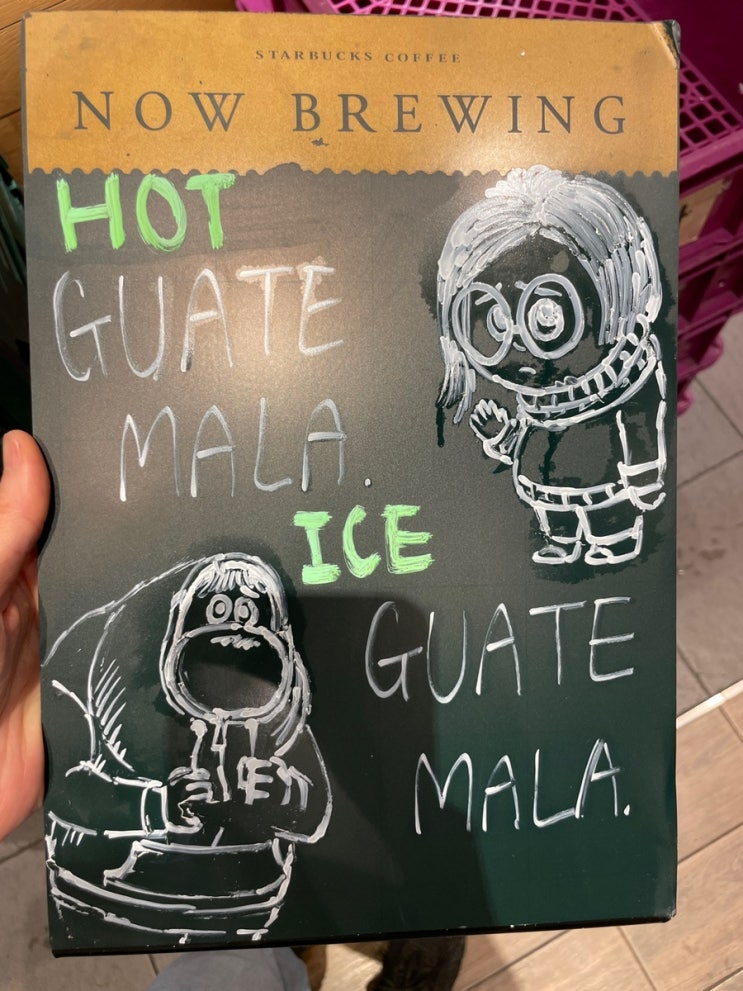 STARBUCKS COFFEE
NOW BREWING
HOT
GUATE
MALA.
ICE
GUATE
MALA.